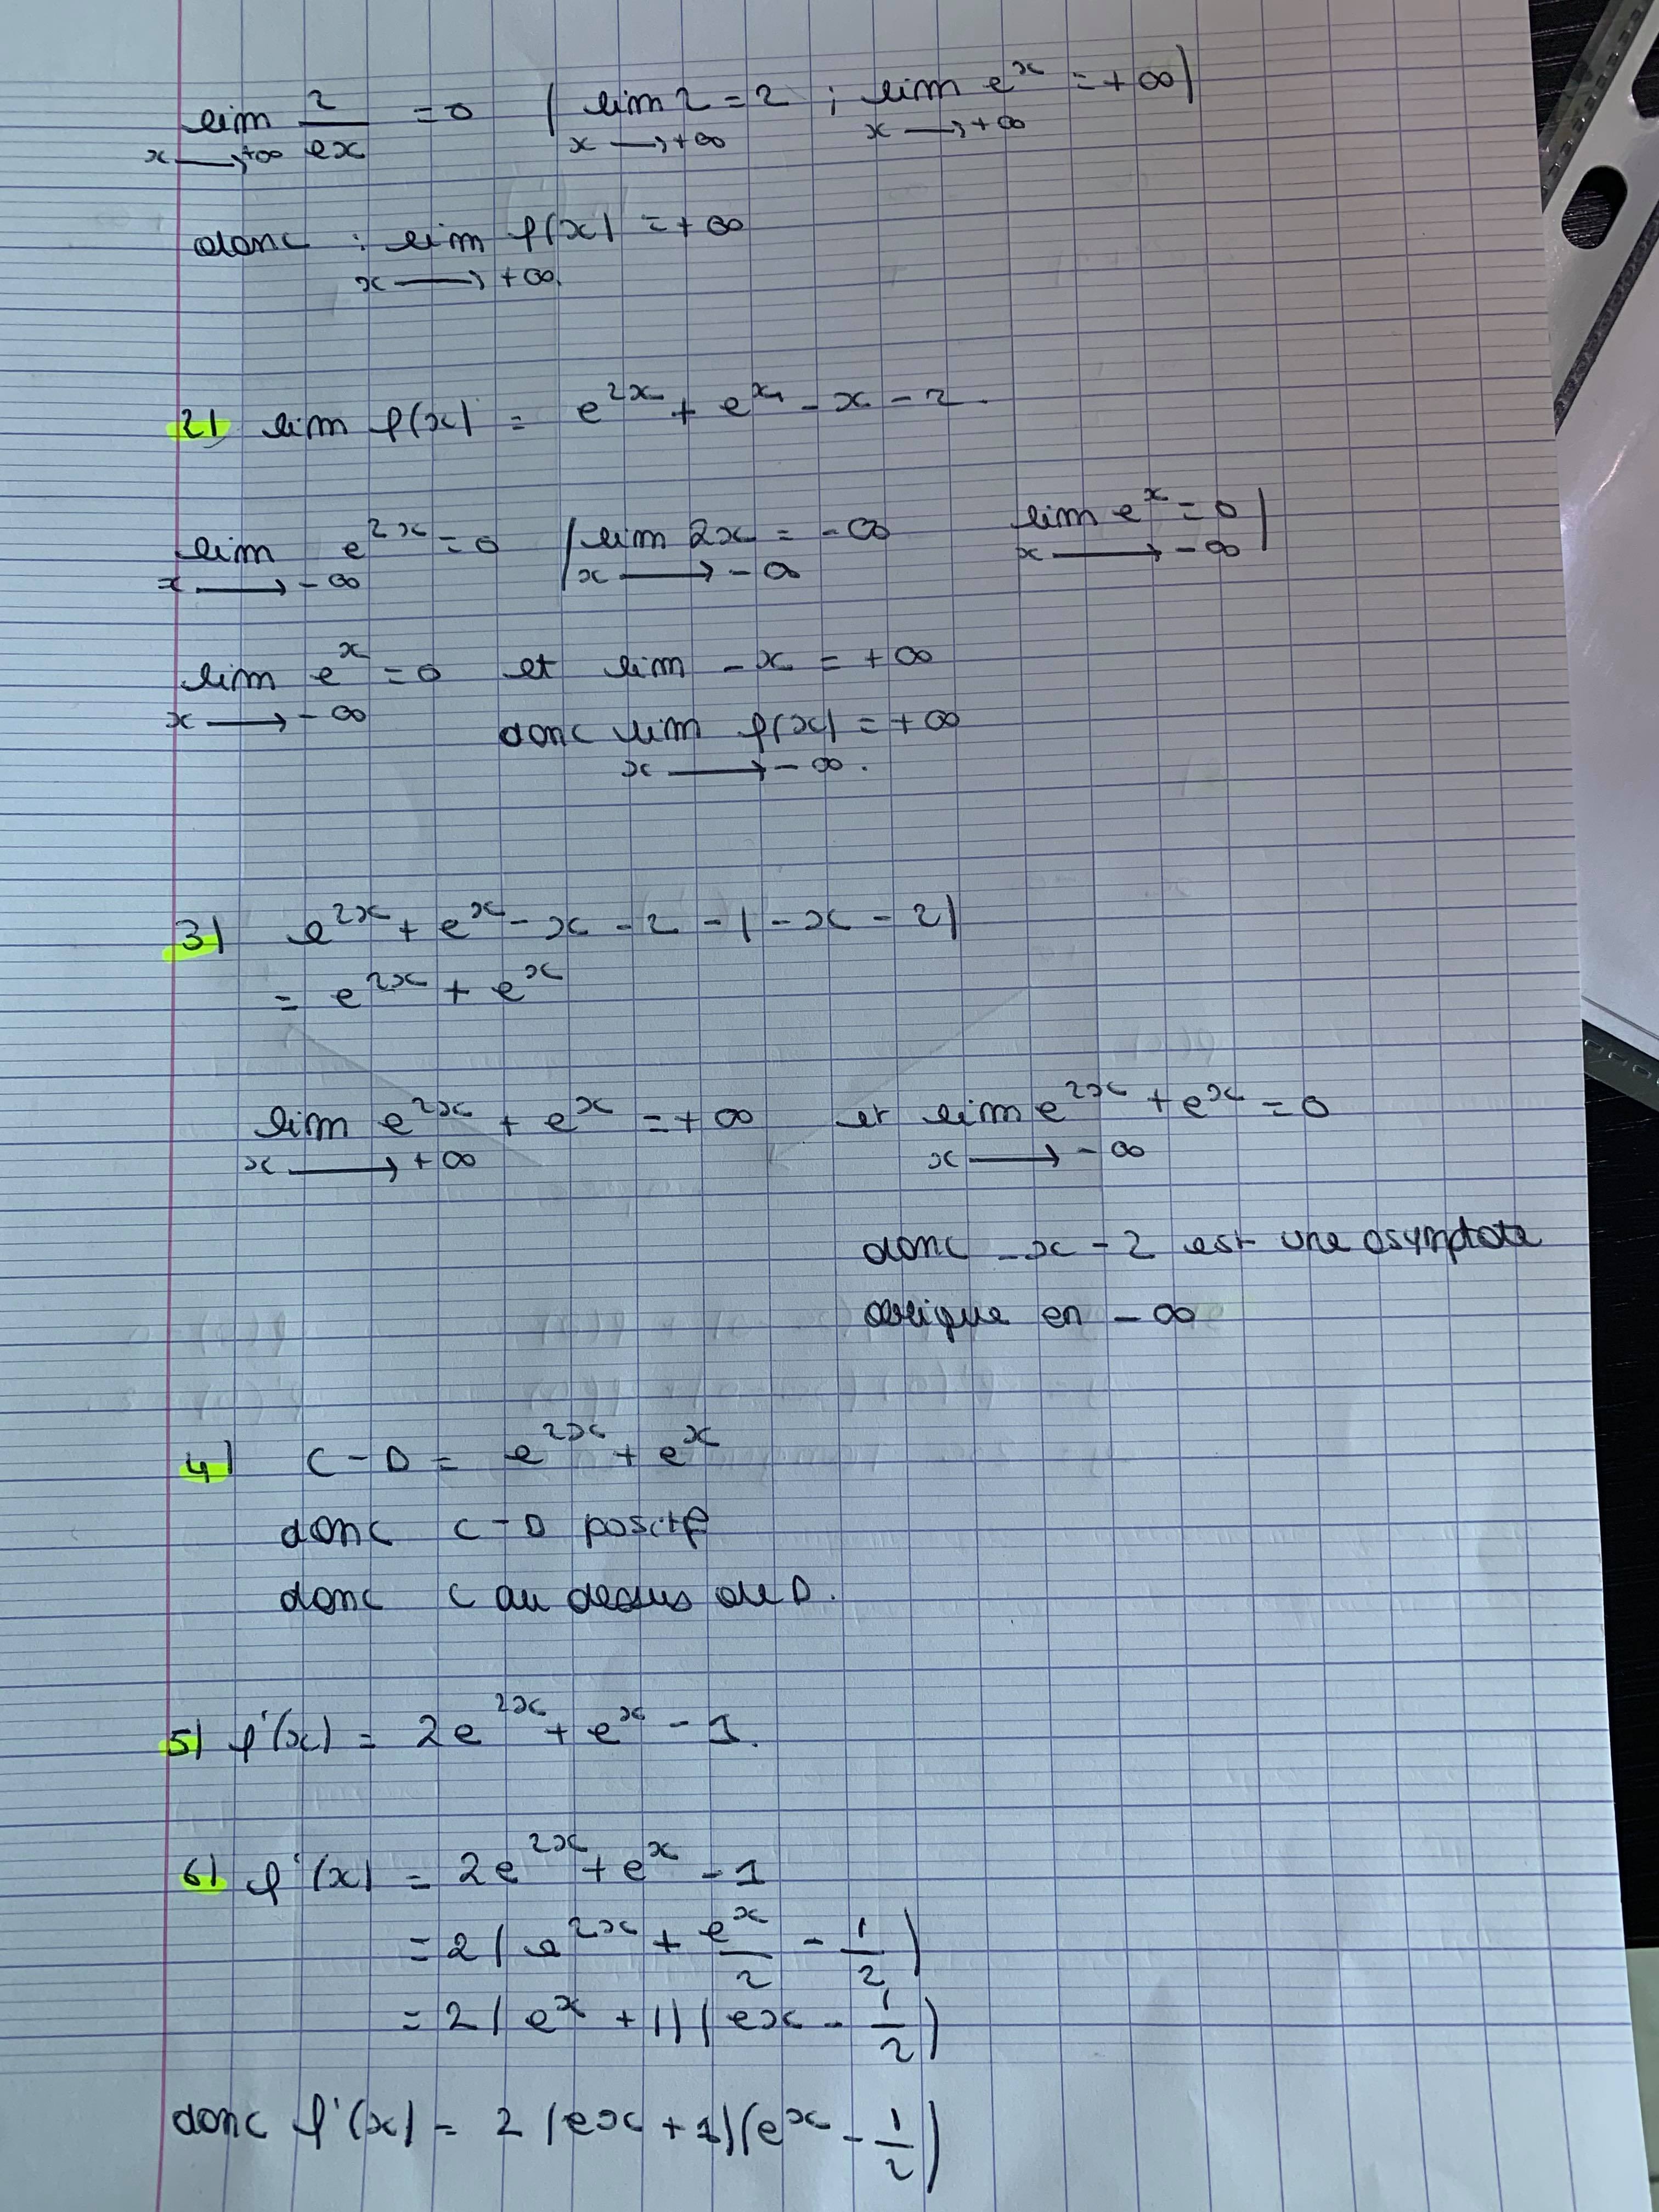 lim 2/ex = 0 ( lim 2 = 2 ; lim e^x = +∞ )
x → +∞ x → +∞ x → +∞
donc : lim f(x) = +∞
x → +∞.
2) lim f(x) = e^2x + e^x - x - 2.
lim e^2x = 0 ( lim 2x = -∞ lim e^x = 0 )
x → -∞ x → -∞ x → -∞
lim e^x = 0 et lim -x = +∞
x → -∞
donc lim f(x) = +∞
x → -∞.
3) e^2x + e^x - x - 2 - (-x - 2)
= e^2x + e^x
lim e^2x + e^x = +∞ et lim e^2x + e^x = 0
x → +∞ x → -∞
donc -x - 2 est une asymptote
oblique en -∞
4) C - D = e^2x + e^x
donc C - D positif
donc C au dessus de D.
5) f'(x) = 2e^2x + e^x - 1.
6) f'(x) = 2e^2x + e^x - 1
= 2 ( e^2x + e^x/2 - 1/2 )
= 2 ( e^x + 1) ( ex - 1/2 )
donc f'(x) = 2 (ex + 1) (e^x - 1/2 )